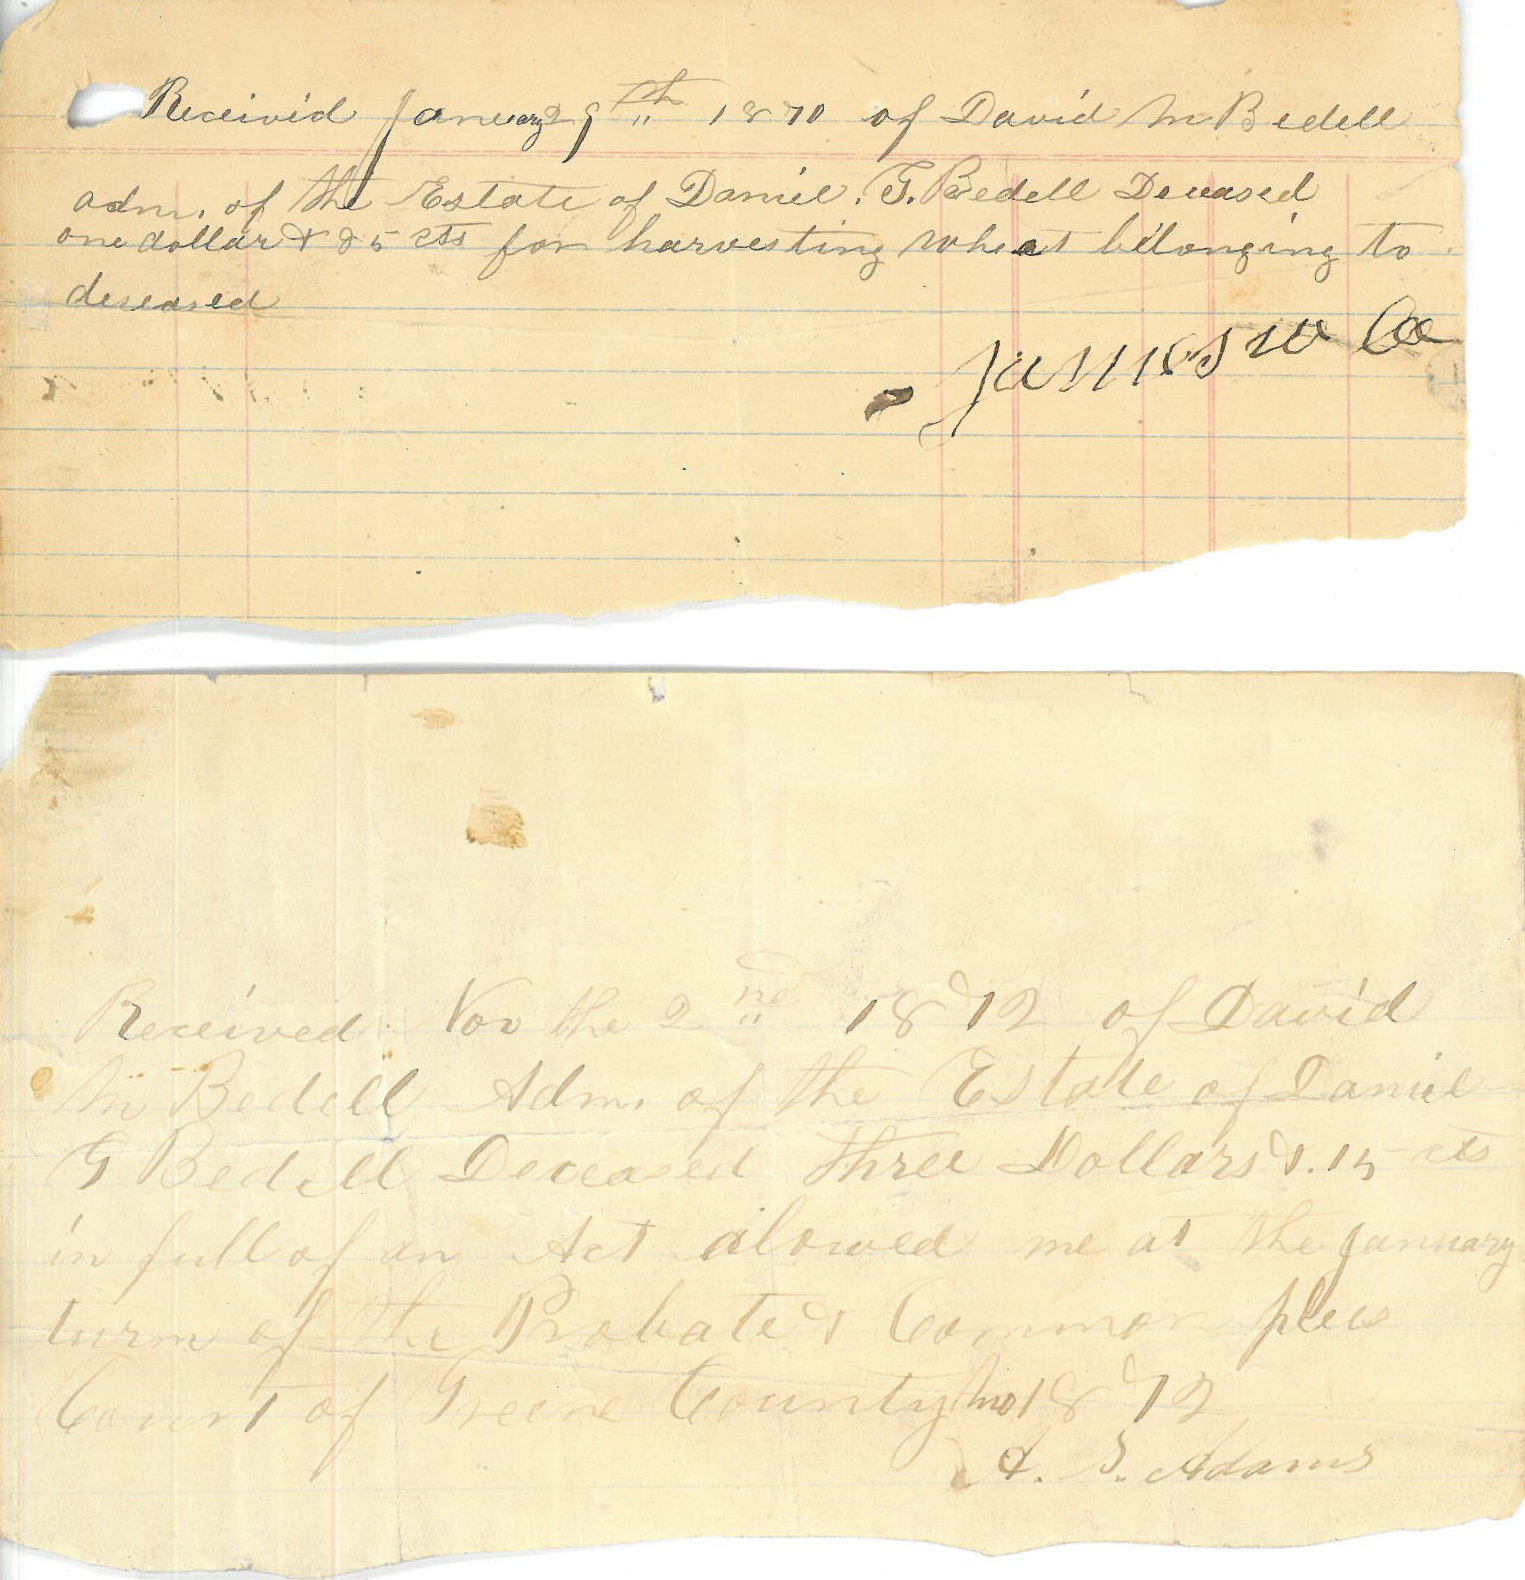 Received January 29th 1870 of David M Bedell
adm. of the Estate of Daniel. G. Bedell Deceased
one dollar & 85 cts for harvesting wheat bělonging to
deseased
James W Cox
Received Nov the 2nd 1872 of David
M Bedell Adm. of the Estate of Daniel
G Bedell Deceased three Dollars &. 15 cts
in full of an Act alowed me at the January
turm of the Probate & Common pleas
Court of Greene County Mo 1872
A. S. Adams